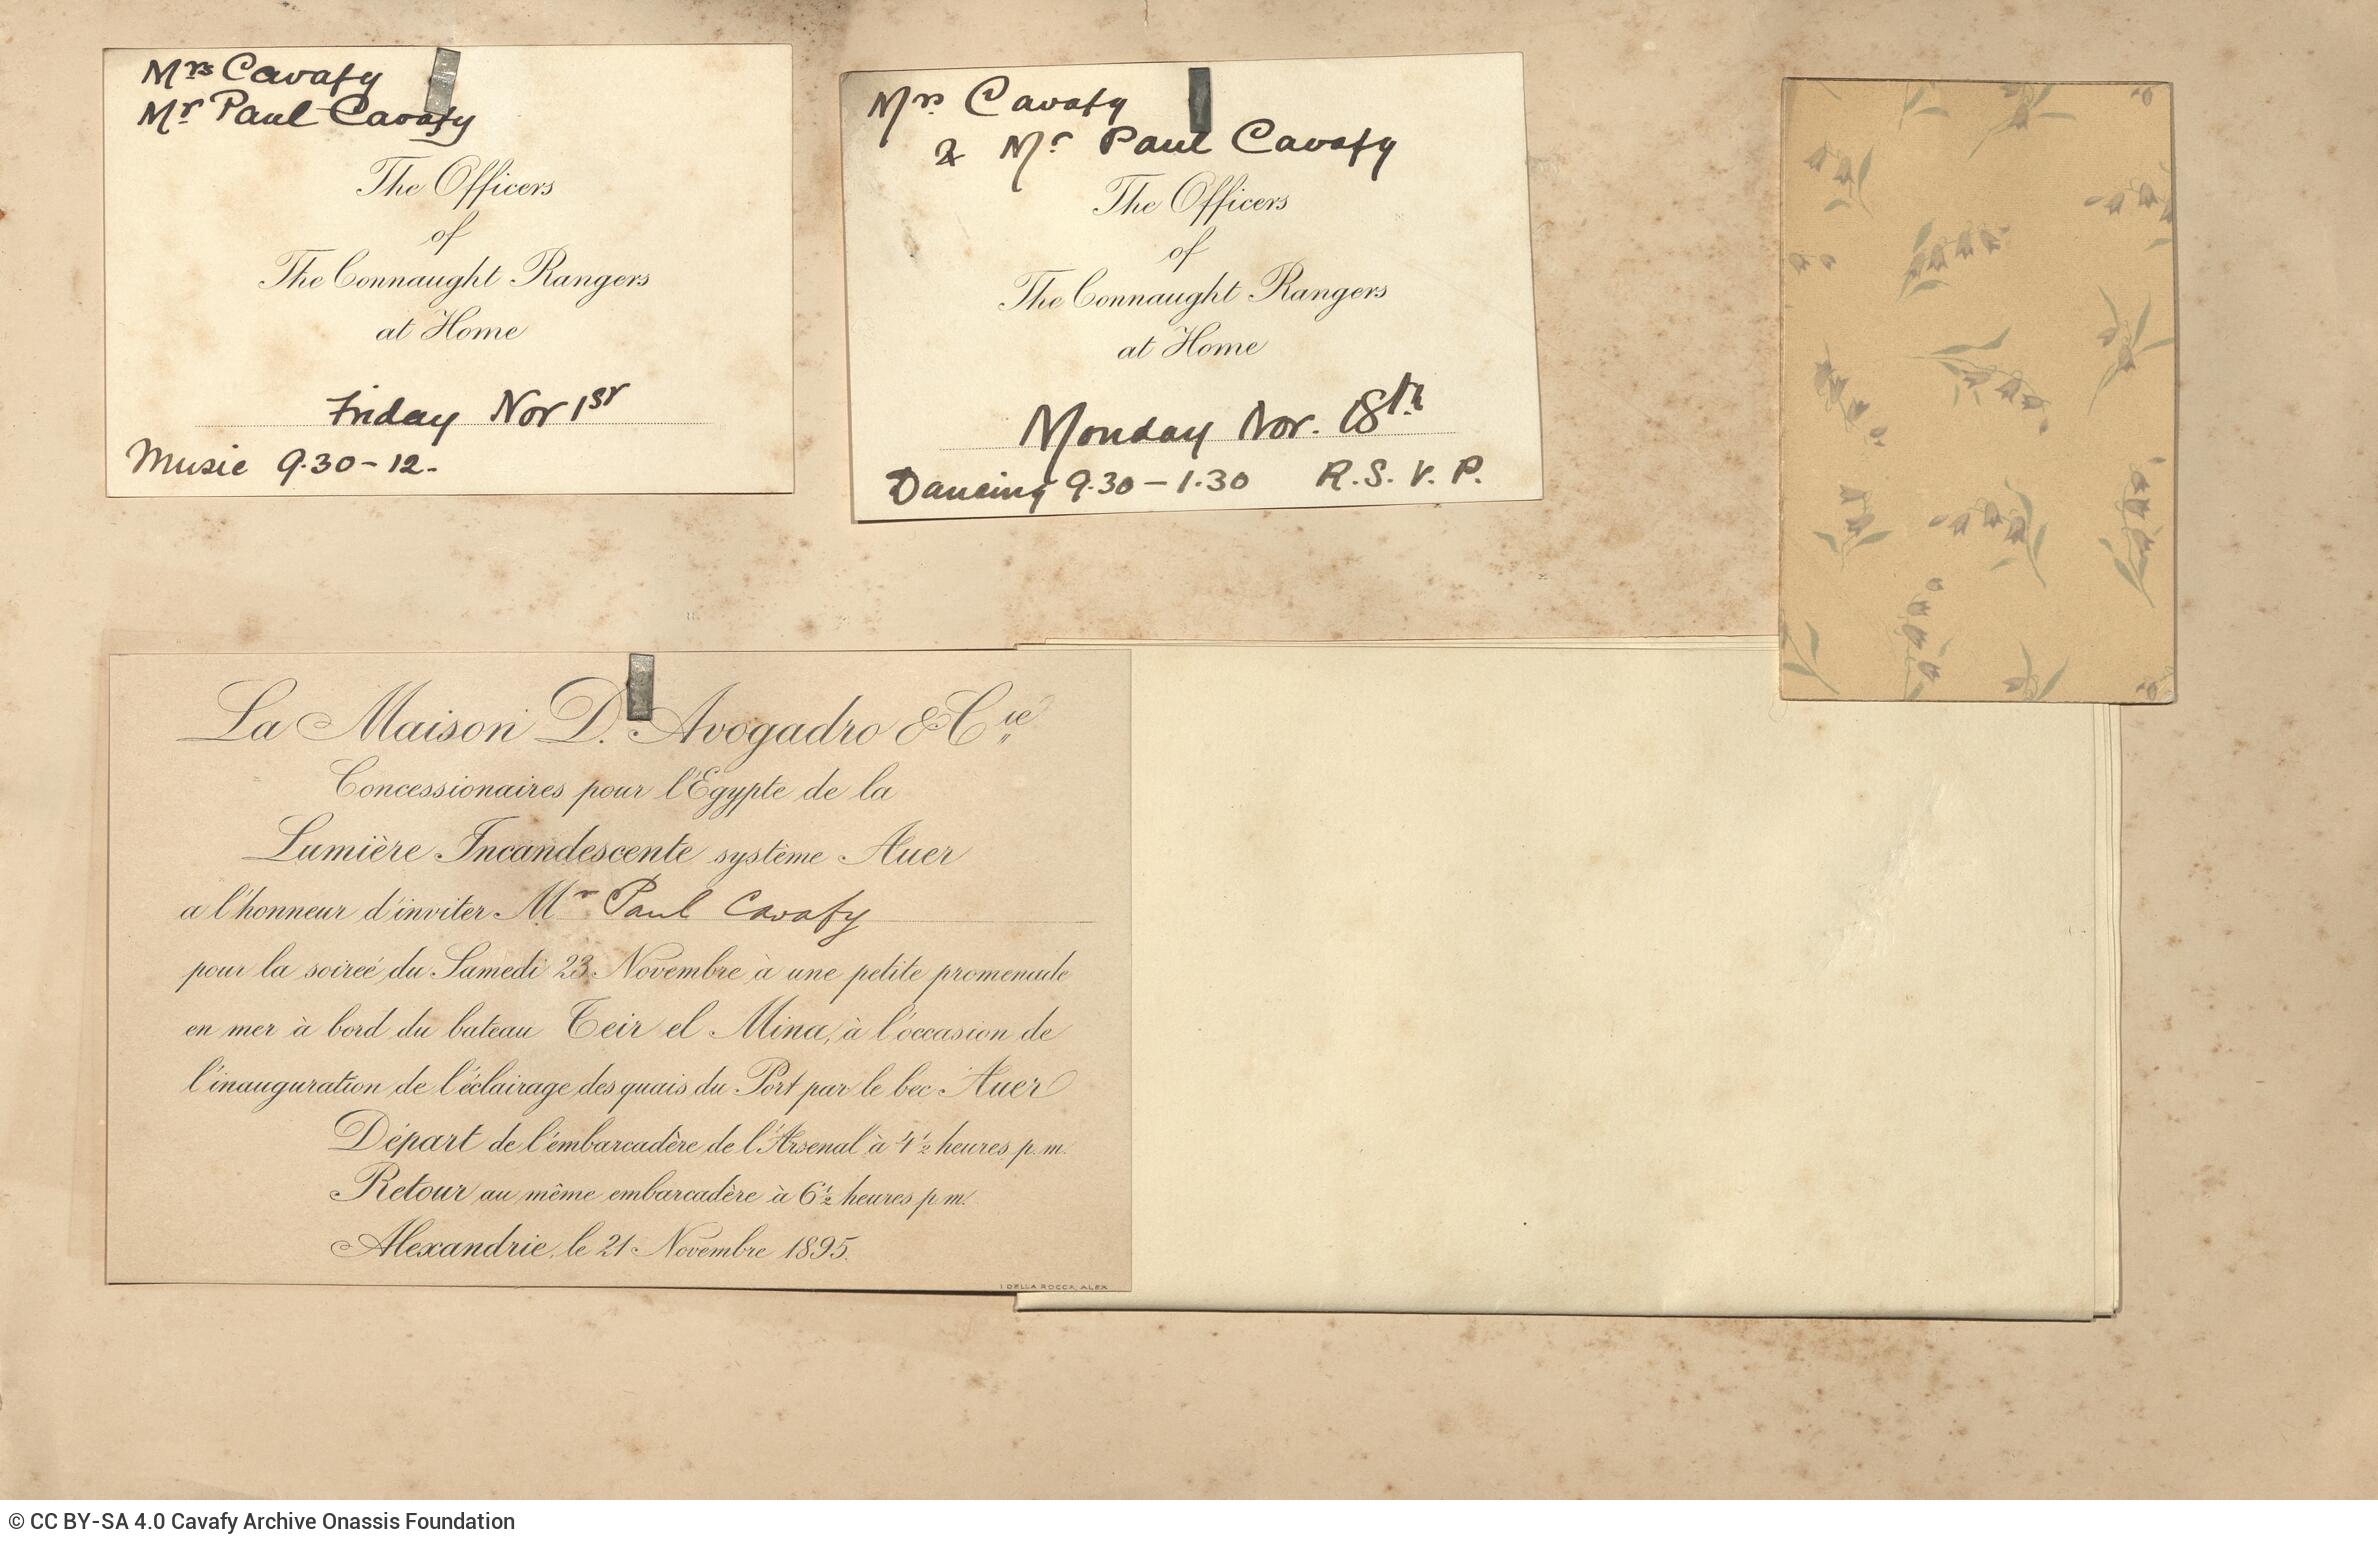 Mrs Cavafy
Mr Paul Cavafy
The Officers
of
The Connaught Rangers
at Home
Friday Nov 1st
Music 9.30-12-
Mrs Cavafy
& Mr Paul Cavafy
The Officers
of
The Connaught Rangers
at Home
Monday Nov. 18th
Dancing 9.30-1.30 R.S.V.P.
La Maison D. Avogadro & Cie
Concessionaires pour l'Egypte de la
Lumière Incandescente système Auer
a l'honneur d'inviter Mr Paul Cavafy
pour la soireé du Samedi 23 Novembre à une petite promenade
en mer à bord du bateau Teir el Mina, à l'occasion de
l'inauguration de l'éclairage des quais du Port par le bec Auer
Départ de l'embarcadère de l'Arsenal à 4 1/2 heures p. m.
Retour au même embarcadère à 6 1/2 heures p. m.
Alexandrie, le 21 Novembre 1895.
I DELLA ROCCA, ALEX
© CC BY-SA 4.0 Cavafy Archive Onassis Foundation